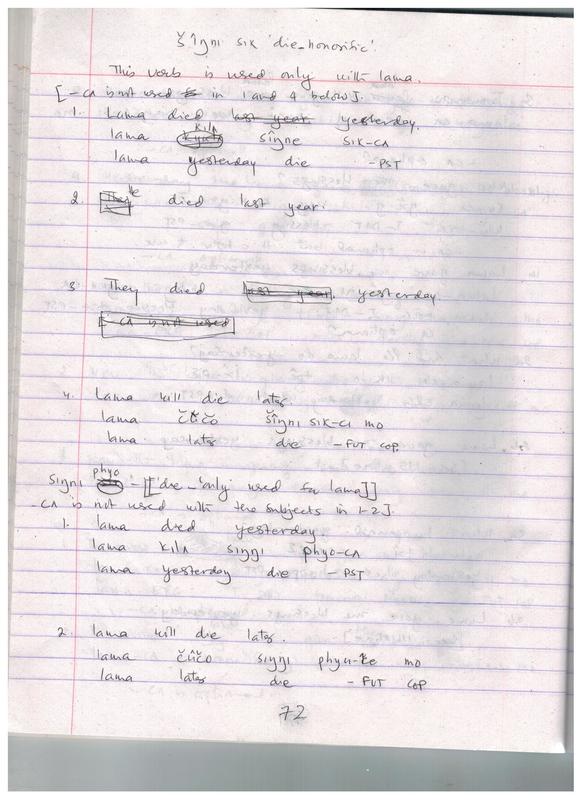 šĩŋni sik 'die_honorific'.
This verb is used only with lama.
[-CΛ is not used in 1 and 4 below].
1. Lama died last year yesterday.
lama kilΛ šiŋne sik-CΛ
lama yesterday die -PST
2. He died last year.
3 They died last year. yesterday
-CΛ is not used
4. Lama will die later
lama čũčo šĩŋni sik-CΛ mo
lama later die -FUT COP.
siŋni phyo - [['die_'only' used for lama]]
-CΛ is not used with the subjects in 1-2].
1. lama died yesterday.
lama kilΛ siŋŋi phyo-CΛ
lama yesterday die - PST
2. lama will die later.
lama čũčo siŋŋi phyu-ke mo
lama later die - FUT COP
72